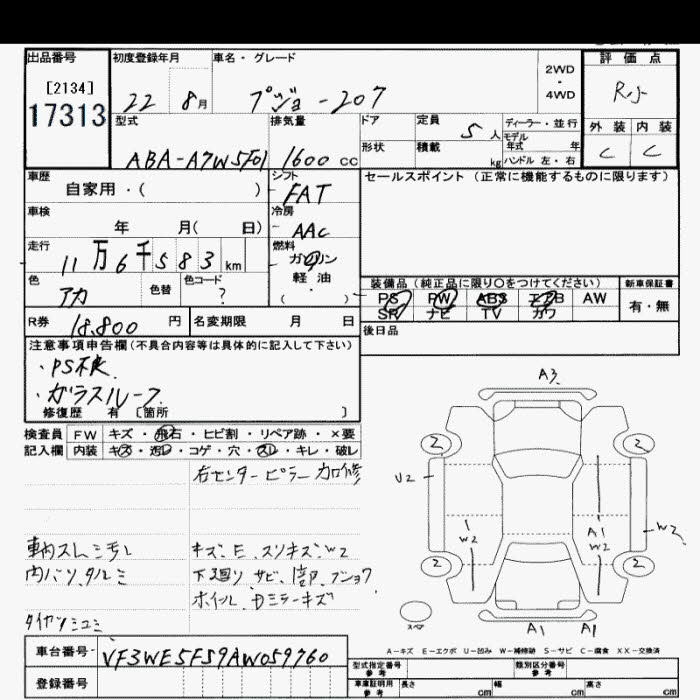 出品番号 初度登録年月 車名・グレード 2WD・4WD 評価点
[2134]
17313 22 8月 プジョー207
外装 内装
C C
型式 排気量 ドア 定員 5人 ディーラー・並行
モデル年式 年
形状 積載 kg ハンドル 左・右
ABA-A7W5F01 1600cc
車歴 シフト セールスポイント(正常に機能するものに限ります)
自家用・( ) FAT
車検 冷房
年 月( 日) AAC
走行 燃料
11万6千583km ガソリン
軽油
( )
色 色替 色コード 装備品(純正品に限り〇をつけてください) 新車保証書
アカ ? PS PW ABS エアB AW 有・無
SR ナビ TV カワ
R券 18,800円 名変期限 月 日 後日品
注意事項申告欄(不具合内容等は具体的に記入して下さい)
・PS不良
・ガラスルーフ
修復歴 有 [箇所 ]
検査員 FW キズ・飛石・ヒビ割・リペア跡・×要
記入欄 内装 キズ・汚レ・コゲ・穴・スレ・キレ・破レ
右センターピラー加修
車内スレシミ汚レ キズ、E、スリキズ、W2
内バリ、タルミ 下廻りサビ
ホイル、Dミラーキズ
A3
2 2
U2 A1 W2
W2 W2
2 2
スペア A1 A1
A-キズ E-エクボ U-凹み W-補修跡 S-サビ C-腐食 XX-交換済
車台番号 VF3WE5FS9AW059760
登録番号
型式指定番号 参考 類別区分番号 参考
車庫証明用 参考 長さ cm 幅 cm 高さ cm